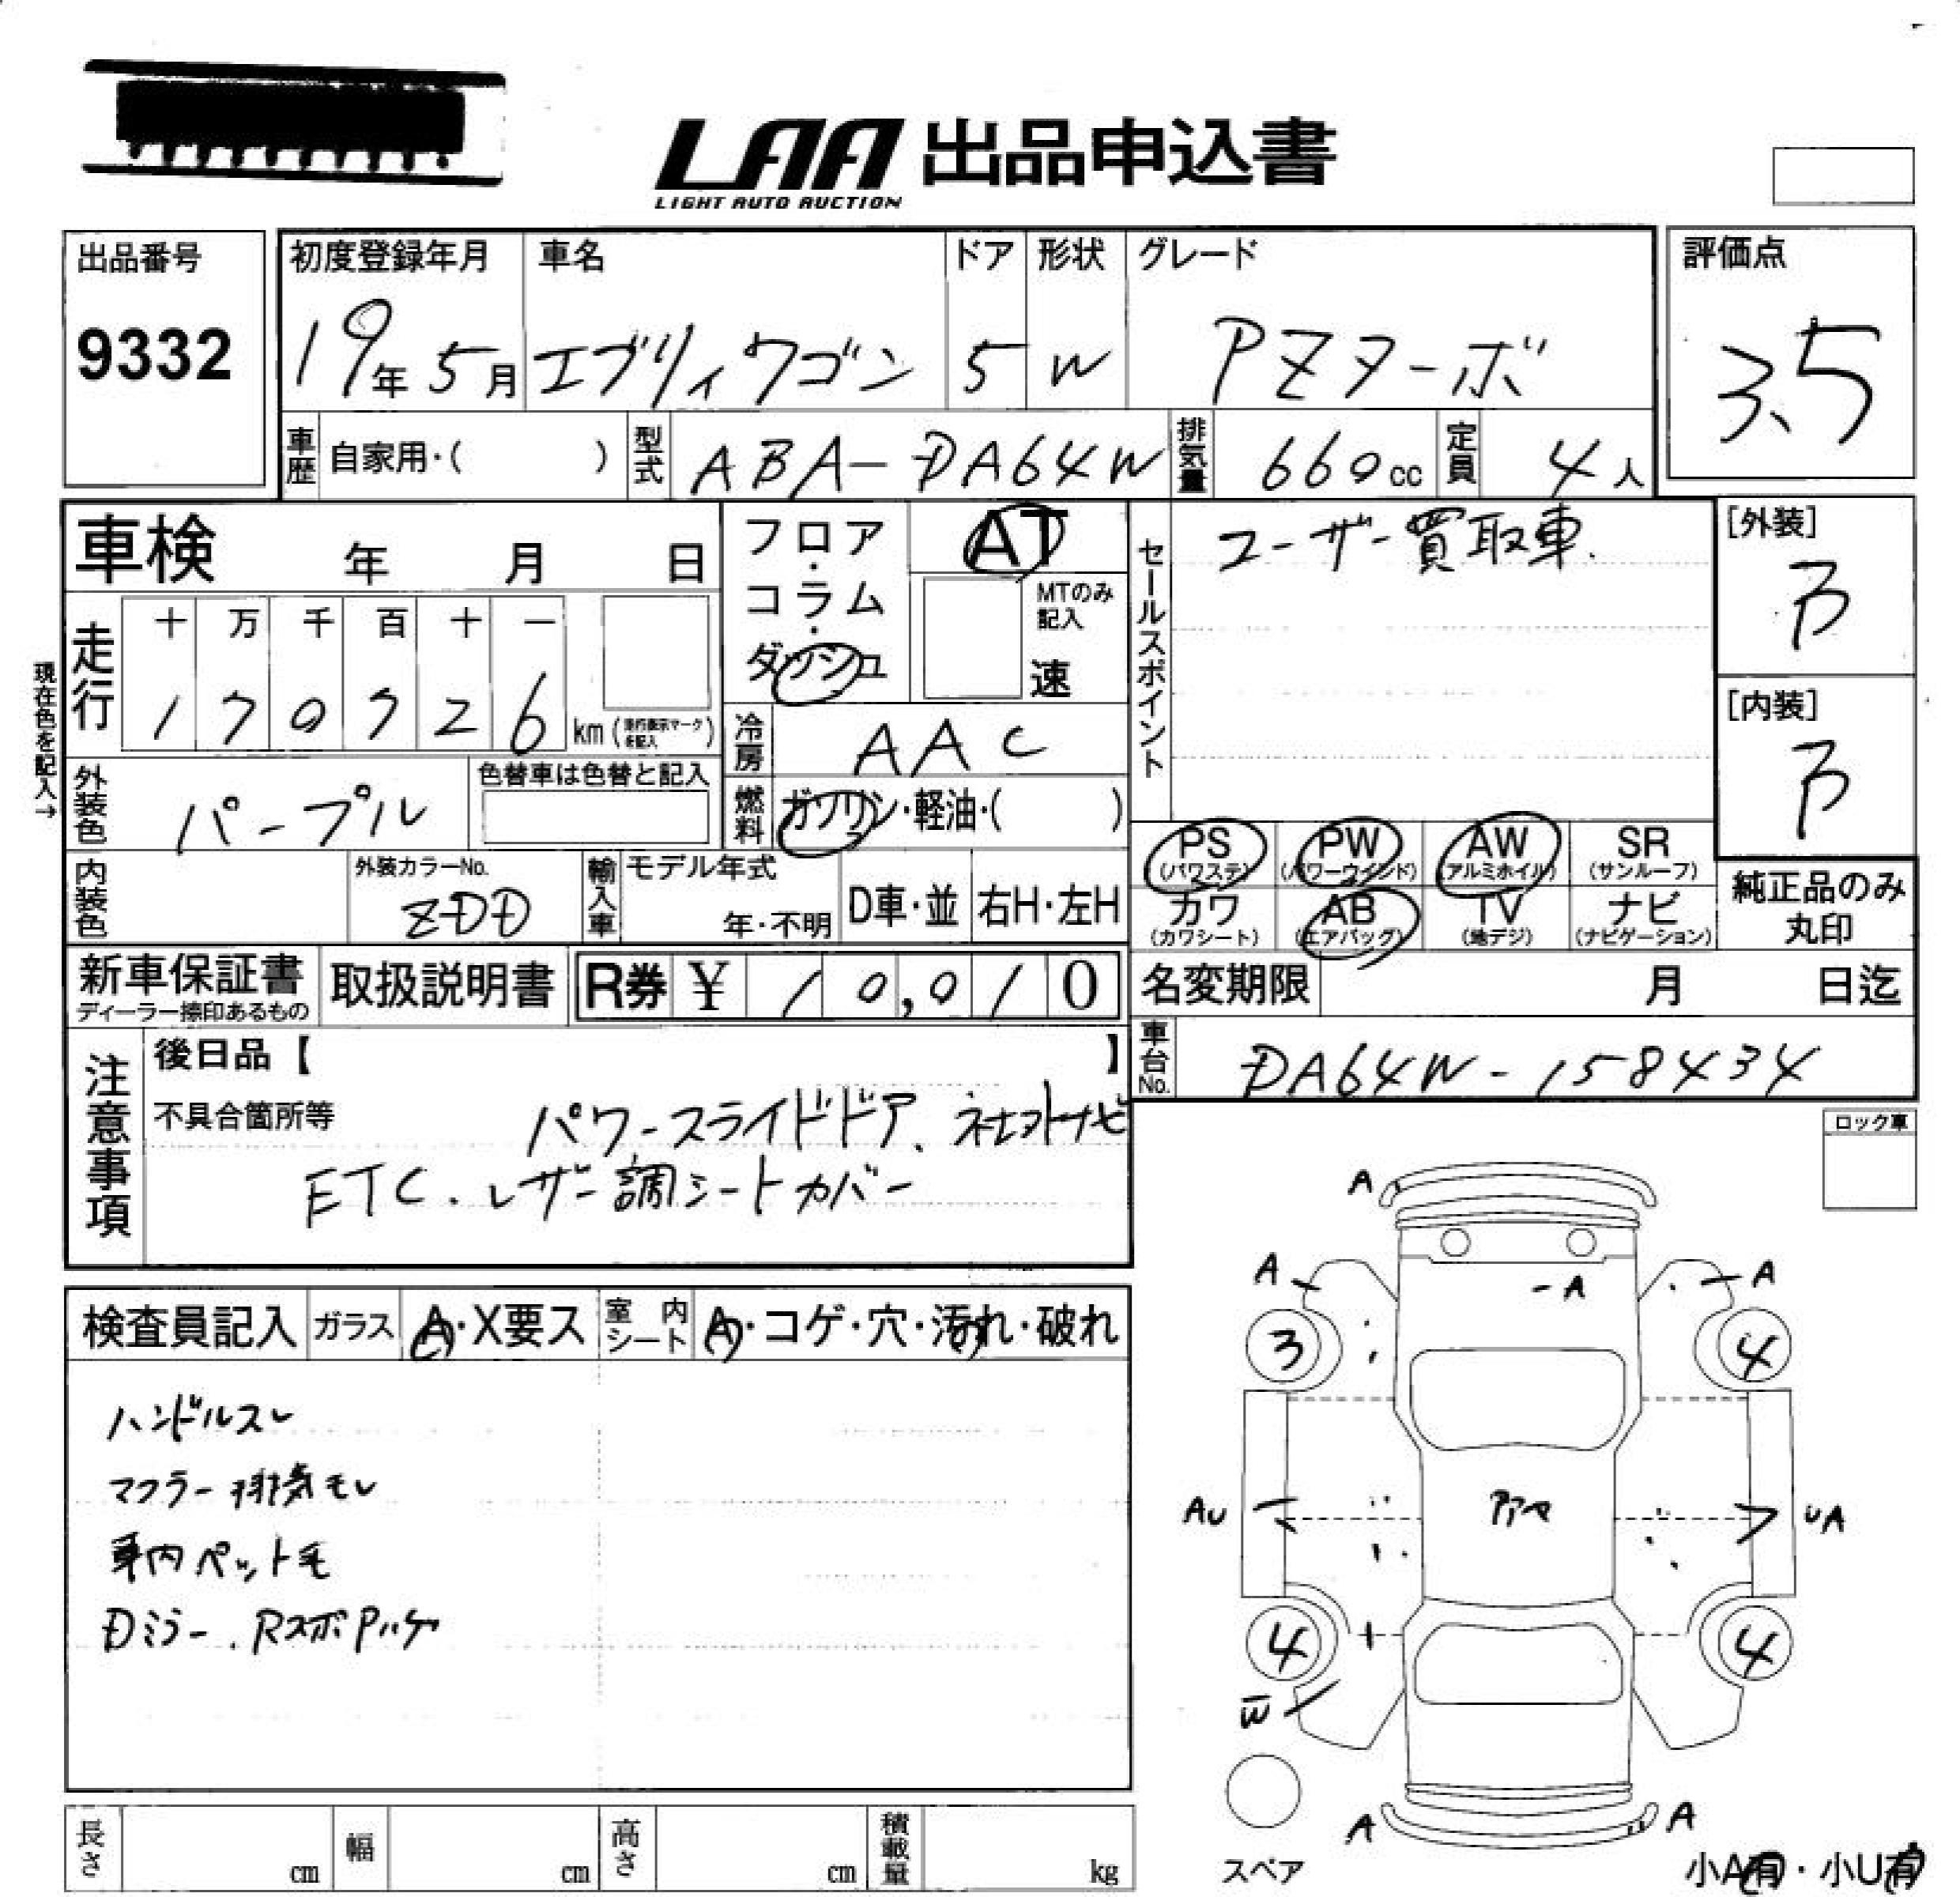 LAA 出品申込書
LIGHT AUTO AUCTION
出品番号
9332
初度登録年月
19年5月
車名
エブリィワゴン
ドア
5
形状
W
グレード
PZターボ
評価点
3.5
車歴 自家用・( )
型式 ABA-DA64W
排気量 660cc
定員 4人
車検 年 月 日
フロア・コラム・ダッシュ
AT
MTのみ記入
速
セールスポイント
ユーザー買取車.
[外装]
[内装]
現在色を記入→
走行
十 万 千 百 十 一
1 7 0 7 2 6 km(走行表示マークを記入)
冷房 AAC
外装色 パープル
色替車は色替と記入
燃料 ガソリン・軽油・( )
内装色
外装カラーNo.
ZDD
輸入車
モデル年式
年・不明
D車・並
右H・左H
PS (パワステ)
PW (パワーウインド)
AW (アルミホイル)
SR (サンルーフ)
カワ (カワシート)
AB (エアバッグ)
TV (地デジ)
ナビ (ナビゲーション)
純正品のみ
丸印
新車保証書
ディーラー捺印あるもの
取扱説明書
R券 ¥ 10,010
名変期限 月 日迄
車台No. DA64W-158434
注意事項
後日品【 】
不具合箇所等
パワースライドドア、社外ナビ
ETC.レザー調シートカバー
ロック車
検査員記入
ガラス A・X要ス
室内シート A・コゲ・穴・汚れ・破れ
ハンドルスレ
マフラー排気モレ
車内ペット毛
Dミラー.RスポPハゲ
A
A
A
A
3
4
AU
UA
4
4
W
A
A
スペア
小A有・小U有
長さ cm
幅 cm
高さ cm
積載量 kg